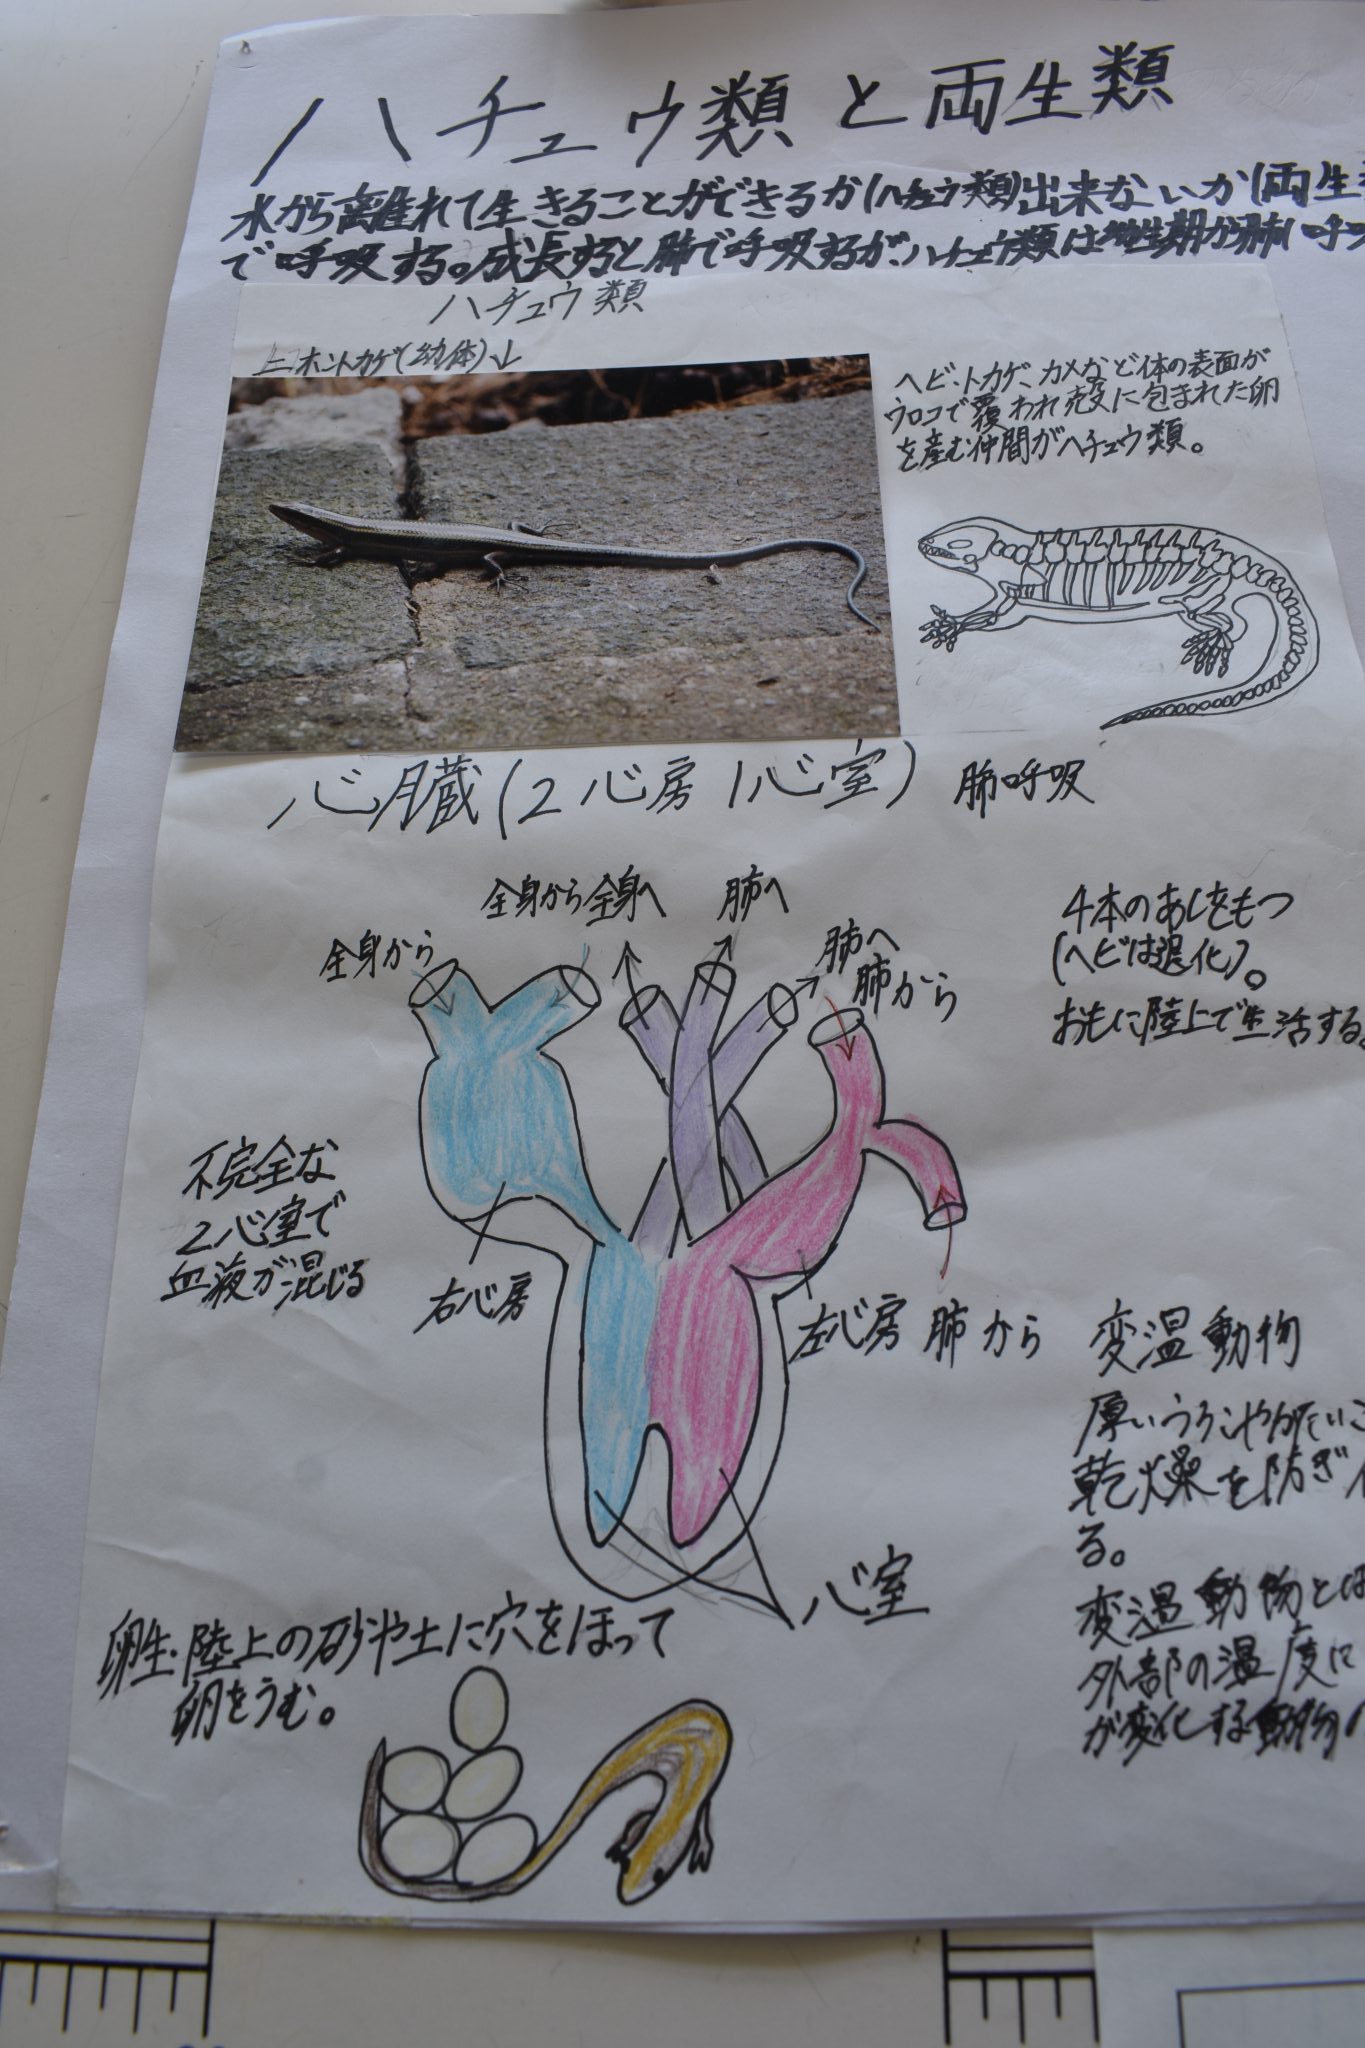 ハチュウ類と両生類
水から離れて生きることができるか(ハチュウ類)出来ないか(両生
で呼吸する。成長すると肺で呼吸するが、ハチュウ類は 肺 呼吸
ハチュウ類
ニホントカゲ(幼体)↓
ヘビ、トカゲ、カメなど体の表面が
ウロコで覆われ殻に包まれた卵
を産む仲間がハチュウ類。
心臓(2心房1心室) 肺呼吸
全身から
全身から
全身へ
肺へ
肺へ
肺から
4本のあしをもつ
(ヘビは退化)。
おもに陸上で生活する。
不完全な
2心室で
血液が混じる
右心房
左心房
肺から
心室
変温動物
厚いうろこやかたいこ
乾燥を防ぎ
る。
変温動物とは
外部の温度に
が変化する動物
卵生・陸上の砂や土に穴をほって
卵をうむ。